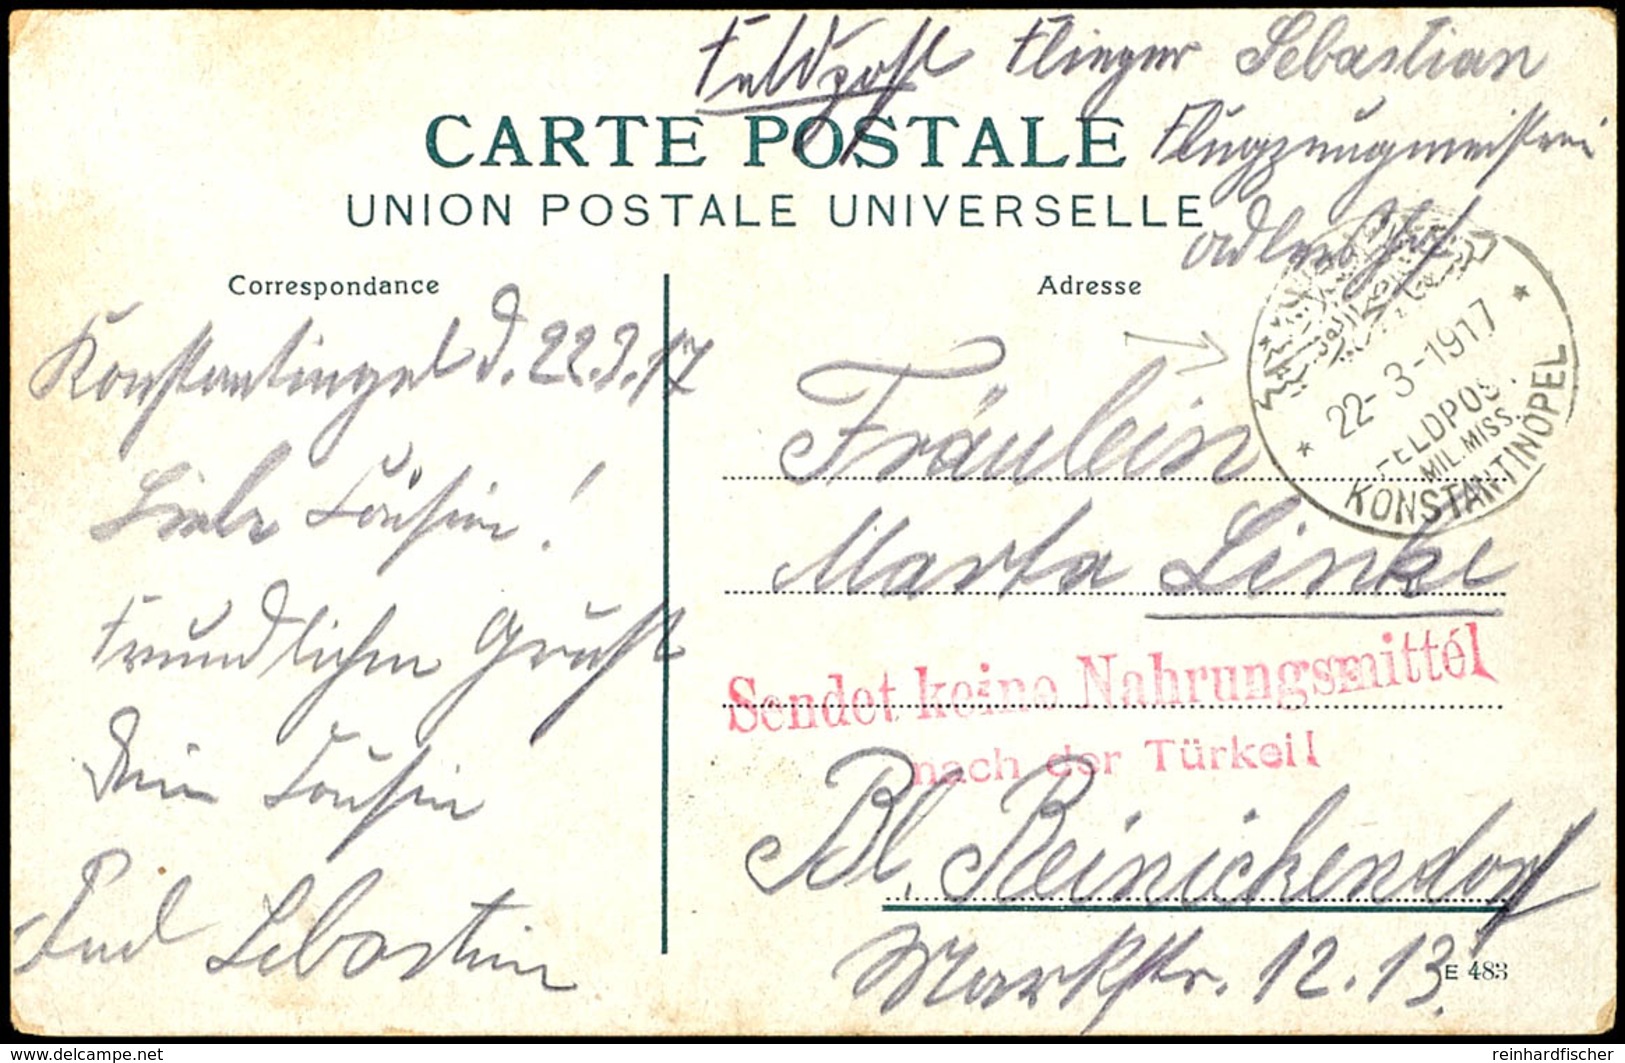 Feldpost Flieger Sebastian
CARTE POSTALE
Flugzeugmeisterei
UNION POSTALE UNIVERSELLE
Adlershof
Correspondance
Adresse
22-3-1917
FELDPOST
MIL. MISS.
KONSTANTINOPEL
Konstantinopel d. 22.3.17
Liebe Cousine!
Freundlichen Gruß
Dein Cousin
Sebastian
Fräulein
Marta Linke
Sendet keine Nahrungsmittel
nach der Türkei!
Bl. Reinickendorf
Markstr. 12.13.
E 483
www.delcampe.net
reinhardfischer